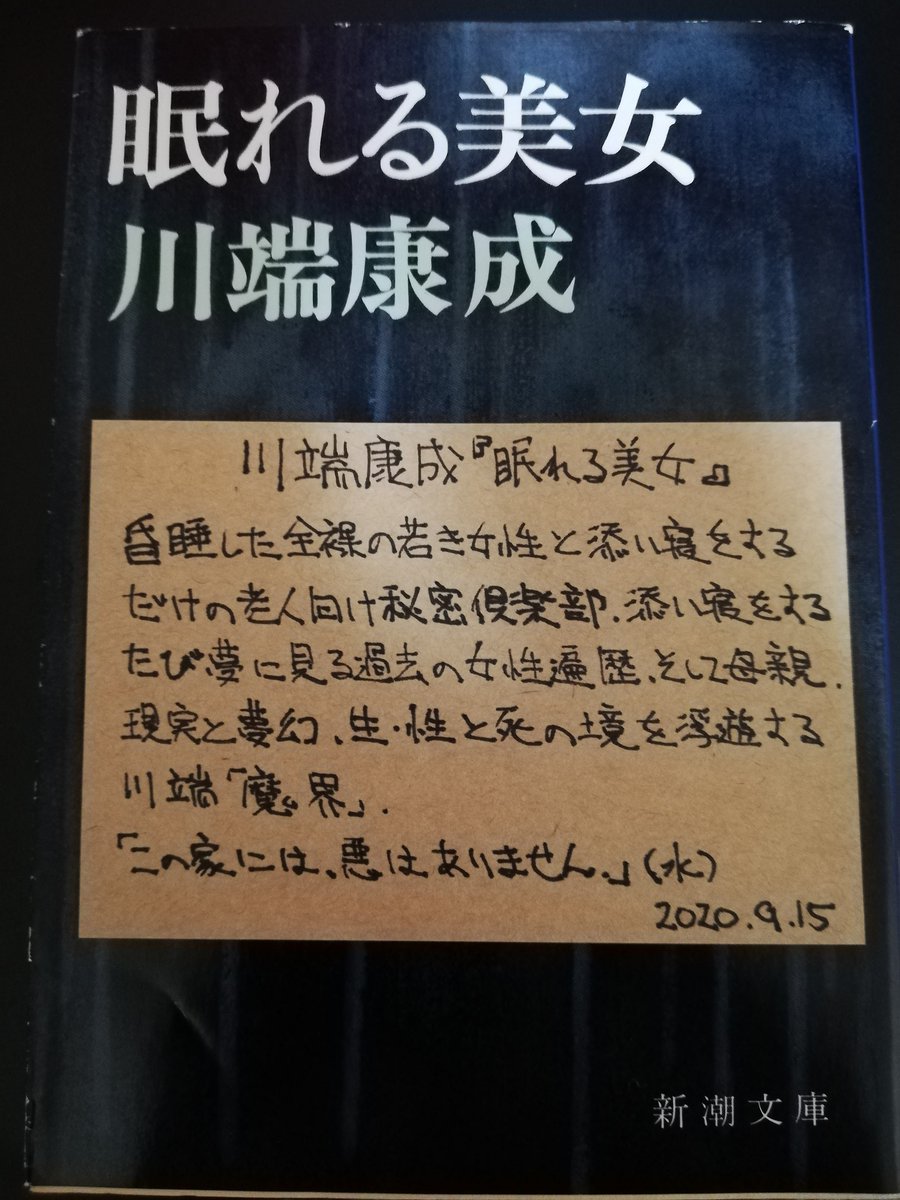 眠れる美女
川端康成
川端康成『眠れる美女』
昏睡した全裸の若き女性と添い寝をする
だけの老人向け秘密倶楽部、添い寝をする
たび夢に見る過去の女性遍歴、そして母親.
現実と夢幻、生・性と死の境を浮遊する
川端「魔界」.
「この家には、悪はありません。」(水)
2020.9.15
新潮文庫